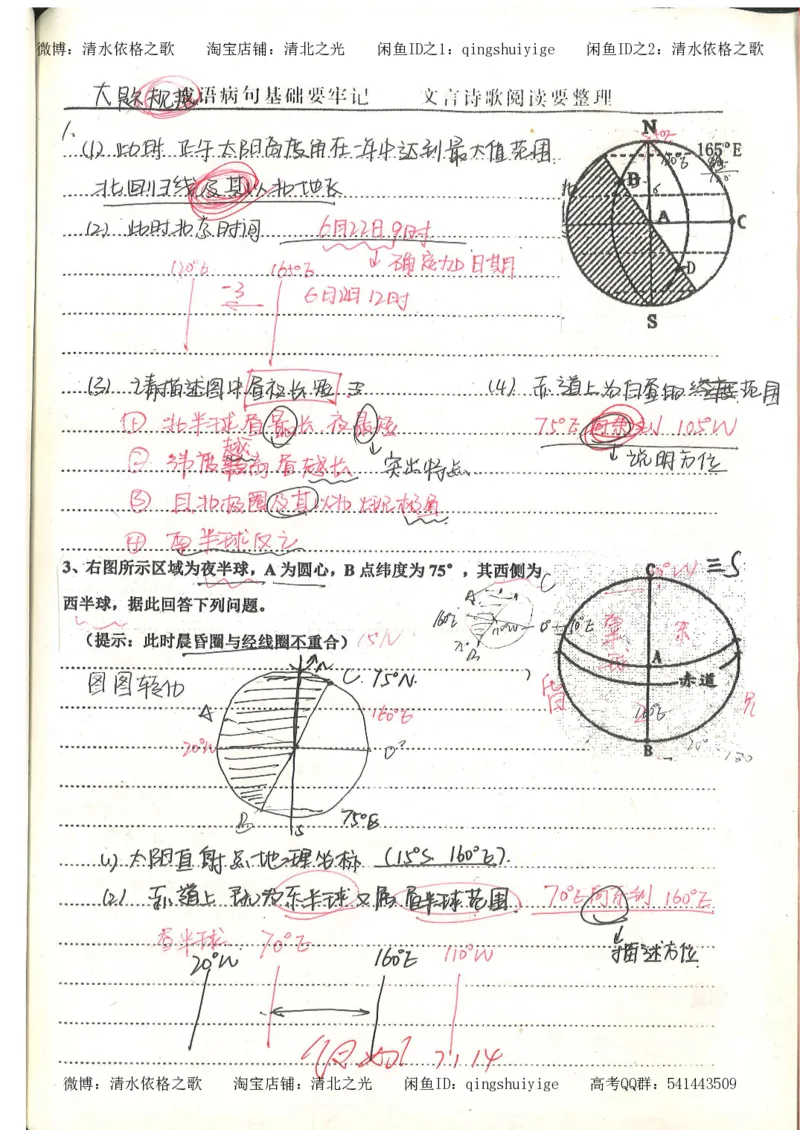 微博：清水依格之歌 淘宝店铺：清北之光 闲鱼ID之1：qingshuiyige 闲鱼ID之2：清水依格之歌
大题规范 语病句基础要牢记 文言诗歌阅读要整理
1.
(1) 此时 正午太阳高度角在一年中达到最大值范围
北回归线及其以北地区
(2) 此时北京时间 6月22日9时
↓确定为D日期
120°E 165°E
-3
6月22日12时
N
165°E
B
A
C
D
S
(3) 请描述图中昼夜长短
① 北半球昼最长 夜最短
② 纬度越高昼越长 突出特点
③ 且北极圈及其以北出现极昼
④ 南半球反之
(4) 赤道上为白昼的经度范围
75°E 向东到 105°W
↓说明方位
3、右图所示区域为夜半球，A 为圆心，B 点纬度为 75°，其西侧为
西半球，据此回答下列问题。
（提示：此时晨昏圈与经线圈不重合）
C
A
赤道
B
160°E
图图转化
N
C 75°N
A
160°E
20°W
0°
B
S
75°S
(1) 太阳直射点地理坐标 (15°S 160°E).
(2) 赤道上既为东半球又属昼半球范围 70°E向东到 160°E
↓描述方位
昼半球
20°W 70°E 160°E 110°W
微博：清水依格之歌 淘宝店铺：清北之光 闲鱼ID：qingshuiyige 高考QQ群：541443509